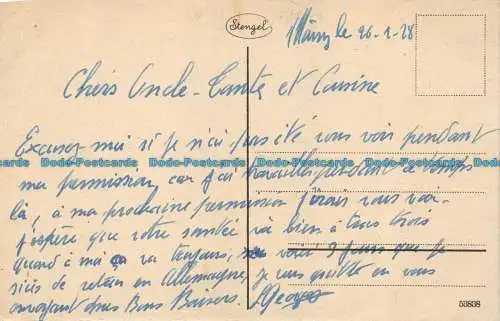 Stengel
le 26-1-28
Chers Oncle-Tante et Cousine
Excusez moi si je n'ai pas été vous voir pendant
ma permission car j'ai travaillé pendant ce temps
là, à ma prochaine permission j'irais vous voir.
J'espère que votre santée va bien à tous trois
quand à moi ça va toujours, voici 3 jours que je
suis de retour en Allemagne, je vous quitte en vous
envoyant des Bons Baisers. Georges
Dodo-Postcards Dodo-Postcards Dodo-Postcards Dodo-Postcards Dodo-Postcards
53838